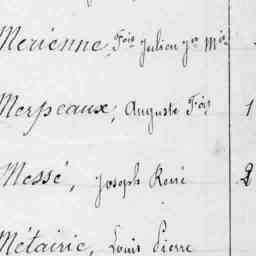 Merienne, Fois Julien Jn Mie
Merpeaux, Auguste Fois 1
Messé, Joseph René 2
Métairie, Louis Pierre